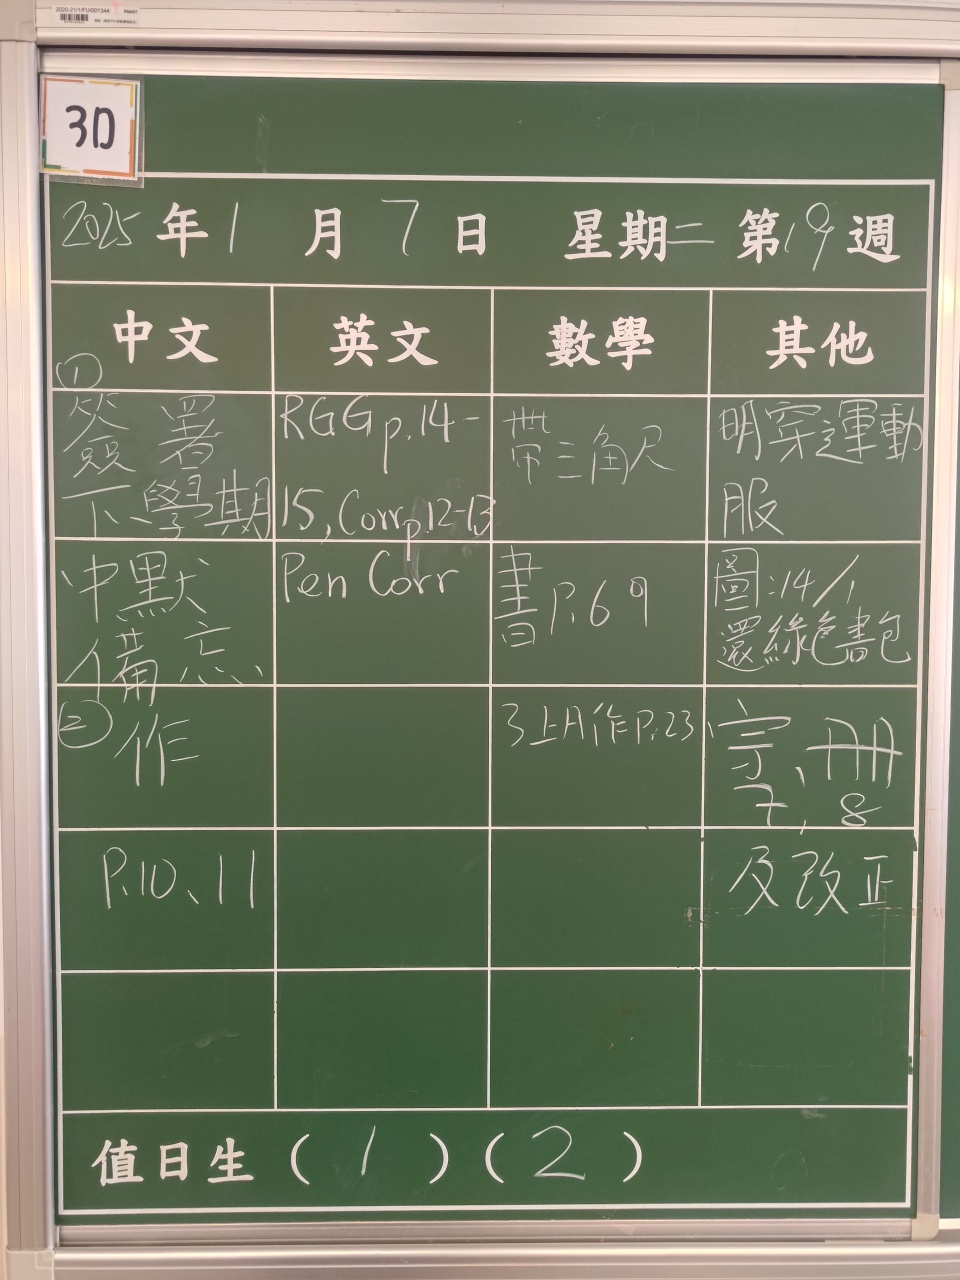 2020-21/1/FU/001344
3D
2025年1月7日 星期二 第19週
中文 英文 數學 其他
①
簽署
下學期
中默
備忘
② 作
P.10、11
RGG p.14-
15, Corr p.12-13
Pen Corr
帶三角尺
書 P.69
3上A作P.23
明穿運動
服
圖:14/1
還綠色書包
宗、冊
7, 8
及改正
值日生 (1) (2)